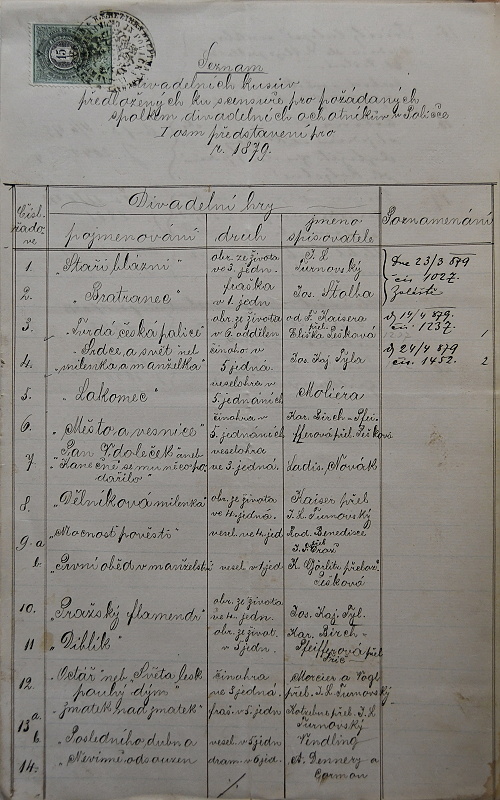 15
Seznam
divadelních kusův
předložených ku scensuře pro požádaných
spolkem divadelních ochotníkův v Poličce
I osm představení pro
r. 1879.
Čísl. řadové
Divadelní hry
Poznamenání
pojmenování druh jmeno spisovatele
1. „Staří blázni" obr. ze života ve 3. jedn. J. L. Turnovský
Dne 23/3 879
čis. 1027.
2. „Bratranec" fraška v 1. jedn Jos. Štolba
3. „Tvrdá česká palice" obr. ze života v 6. oddílen od F. Kaisera přel. Eliška Pešková
14/4 879.
čis. 1237. 1
4. „Srdce a svět" neb „milenka a manželka" činohr. v 5. jedná. Jos. Kaj. Tyla
24/4 879
čis. 1452. 2
5. „Lakomec" veselohra v 5. jednáních Moliéra
6. „Město a vesnice" činohra v 5. jednáních Kar. Birch-Pfeifferová přel. Pešková
7. „Pan Vdoleček" aneb „Konečně se mu něco podařilo" veselohra ve 3. jedná. Ladis. Novák
8. „Dělníková milenka" obr. ze života ve 4. jedná. Kaiser přel J. L. Turnovský
9. a „Mocnost pověsti" vesel. ve 4. jed Rod. Benedixe přel
b „První oběd v manželství" vesel v 1 jed K. Görlitz Pešková
10. „Pražský flamendr" obr. ze života ve 4. jedn. Jos. Kaj. Tyl.
11 „Diblík" obr. ze život. v 5. jedn. Kar. Birch-Pfeifferová přel
12. „Octář" neb „Světa lesk pouhý dým" činohra ve 3 jedná. Mercier a Vogl přel. J. L. Turnovský
13 a „Zmatek nad zmatek" fraš. v 5. jedn Kotzebue přel. J. L. Turnovský
b „Posledního dubna" vesel. v 5 jedn Vindling
14. „Nevinně odsouzen" dram. v 6 jed. A. Dennery a Cormon
./.